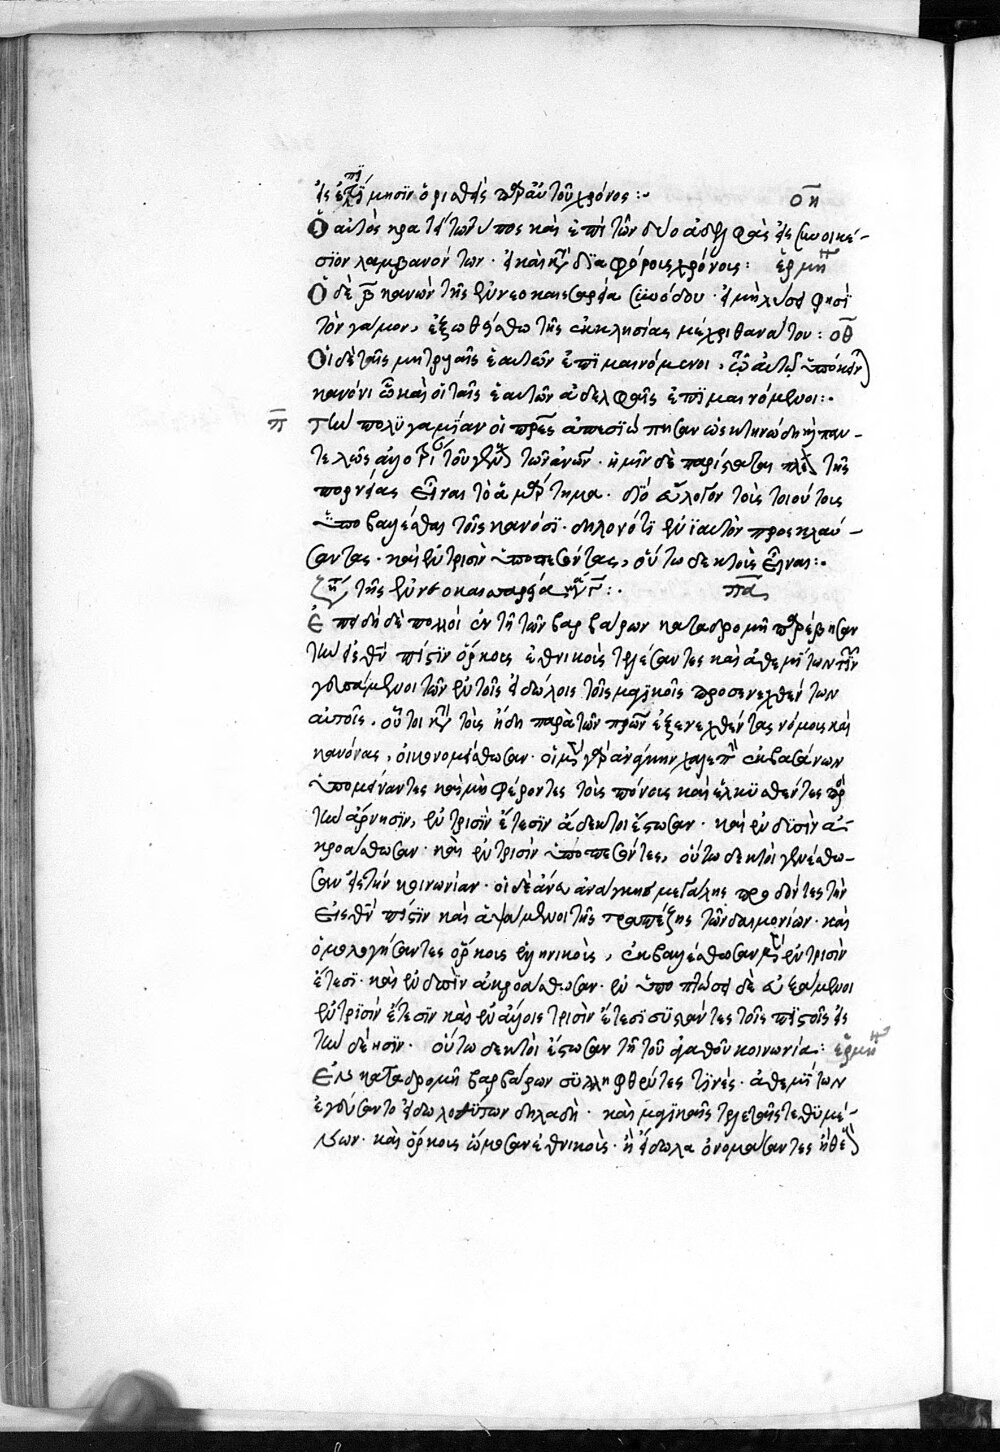 εἰς ἐπιτίμησιν ὁρισθεὶς παρ' αὐτοῦ χρόνος :~ οη
Ὁ αὐτὸς κρατείτω τύπος καὶ ἐπὶ τῶν δύο ἀδελφὰς εἰς συνοικέ-
σιον λαμβανόντων · εἰ καὶ διαφόροις χρόνοις : ἑρμη
Ὁ δὲ β κανὼν τῆς ἐν νεοκαισαρεία συνόδου · εἰ μὴ λύσει φησὶ
τὸν γάμον, ἐξωθείσθω τῆς ἐκκλησίας μέχρι θανάτου : οθ
Οἱ δὲ ταῖς μητρυιαῖς ἑαυτῶν ἐπιμαινόμενοι, τῷ αὐτῷ ὑπόκεινται
κανόνι ᾧ καὶ οἱ ταῖς ἑαυτῶν ἀδελφαῖς ἐπιμαινόμενοι :
π Τὴν πολυγαμίαν οἱ πρες ἀπεσιώπησαν ὡς κτηνώδη καὶ παν-
τελῶς ἀλλότριον τοῦ γένους τῶν ἀνων · ἡμῖν δὲ παρίσταται πλέον τῆς
πορνείας εἶναι τὸ ἁμάρτημα · διὸ εὔλογον τοὺς τοιούτους
ὑποβάλλεσθαι τοῖς κανόσι · δηλονότι ἐνιαυτὸν προσκλαύ-
σαντας · καὶ ἐν τρισὶν ὑποπεσόντας, οὕτω δεκτοὺς εἶναι :
ζή τῆς ἐν νεοκαισαρεία καν γ : πα
Ἐπειδὴ δὲ πολλοὶ ἐν τῇ τῶν βαρβάρων καταδρομῇ παρέβησαν
τὴν εἰς θν πίστιν ὅρκους ἐθνικοὺς τελέσαντες καὶ ἀθεμίτων τινῶν
γευσάμενοι τῶν ἐν τοῖς εἰδώλοις τοῖς μαγικοῖς προσενεχθέντων
αὐτοῖς, οὗτοι κατὰ τοὺς ἤδη παρὰ τῶν πρων ἐξενεχθέντας νόμους καὶ
κανόνας, οἰκονομείσθωσαν · οἱ μὲν γὰρ ἀνάγκην χαλεπὴν ἐκ βασάνων
ὑπομείναντες καὶ μὴ φέροντες τοὺς πόνους καὶ ἑλκυσθέντες πρὸς
τὴν ἄρνησιν, ἐν τρισὶν ἔτεσιν ἄδεκτοι ἔστωσαν · καὶ ἐν δυσὶν ἀ-
κροάσθωσαν · καὶ ἐν τρισὶν ὑποπεσόντες, οὕτω δεκτοὶ γενέσθω-
σαν εἰς τὴν κοινωνίαν · οἱ δὲ ἄνευ ἀνάγκης μεγάλης προδόντες τὴν
εἰς θν πίστιν καὶ ἁψάμενοι τῆς τραπέζης τῶν δαιμονίων · καὶ
ὁμολογήσαντες ὅρκους ἑλληνικοὺς, ἐκβαλλέσθωσαν μὲν ἐν τρισὶν
ἔτεσι · καὶ ἐν δυσὶν ἀκροάσθωσαν · ἐν ὑποπτώσει δὲ εὐξάμενοι
ἐν τρισὶν ἔτεσιν καὶ ἐν ἄλλοις τρισὶν ἔτεσι συστάντες τοῖς πιστοῖς εἰς
τὴν δέησιν · οὕτω δεκτοὶ ἔστωσαν τῇ τοῦ ἀγαθοῦ κοινωνία : ἑρμη
Ἐν καταδρομῇ βαρβάρων συλληφθέντες τινὲς · ἀθεμίτων
ἐγεύσαντο εἰδωλοθύτων δηλαδὴ · καὶ μαγικαῖς τελεταῖς τεθυμέ-
νων · καὶ ὅρκους ὤμοσαν ἐθνικοὺς · ἢ εἴδωλα ὀνομάσαντες ἢ θεοὺς